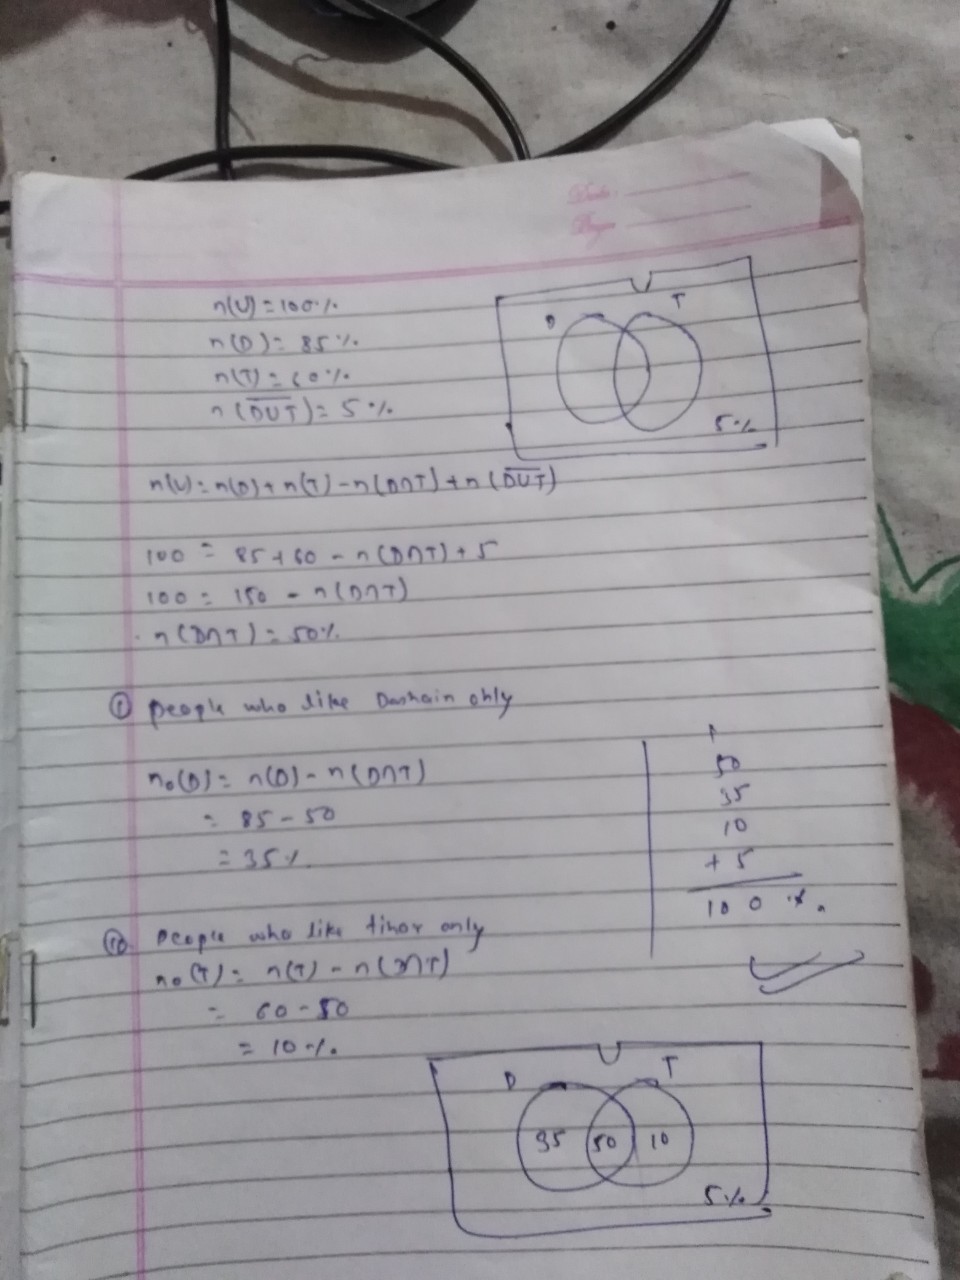 Date:
Page:
n(U) = 100%
n(D) = 85%
n(T) = 60%
n(D̅U̅T̅) = 5%
U
D
T
5%
n(U) = n(D) + n(T) - n(D∩T) + n(D̅U̅T̅)
100 = 85 + 60 - n(D∩T) + 5
100 = 150 - n(D∩T)
n(D∩T) = 50%
① people who like Dashain only
n₀(D) = n(D) - n(D∩T)
= 85 - 50
= 35%
50
35
10
+ 5
100%.
people who like tihar only
n₀(T) = n(T) - n(D∩T)
= 60 - 50
= 10%.
U
D
T
35
50
10
5%